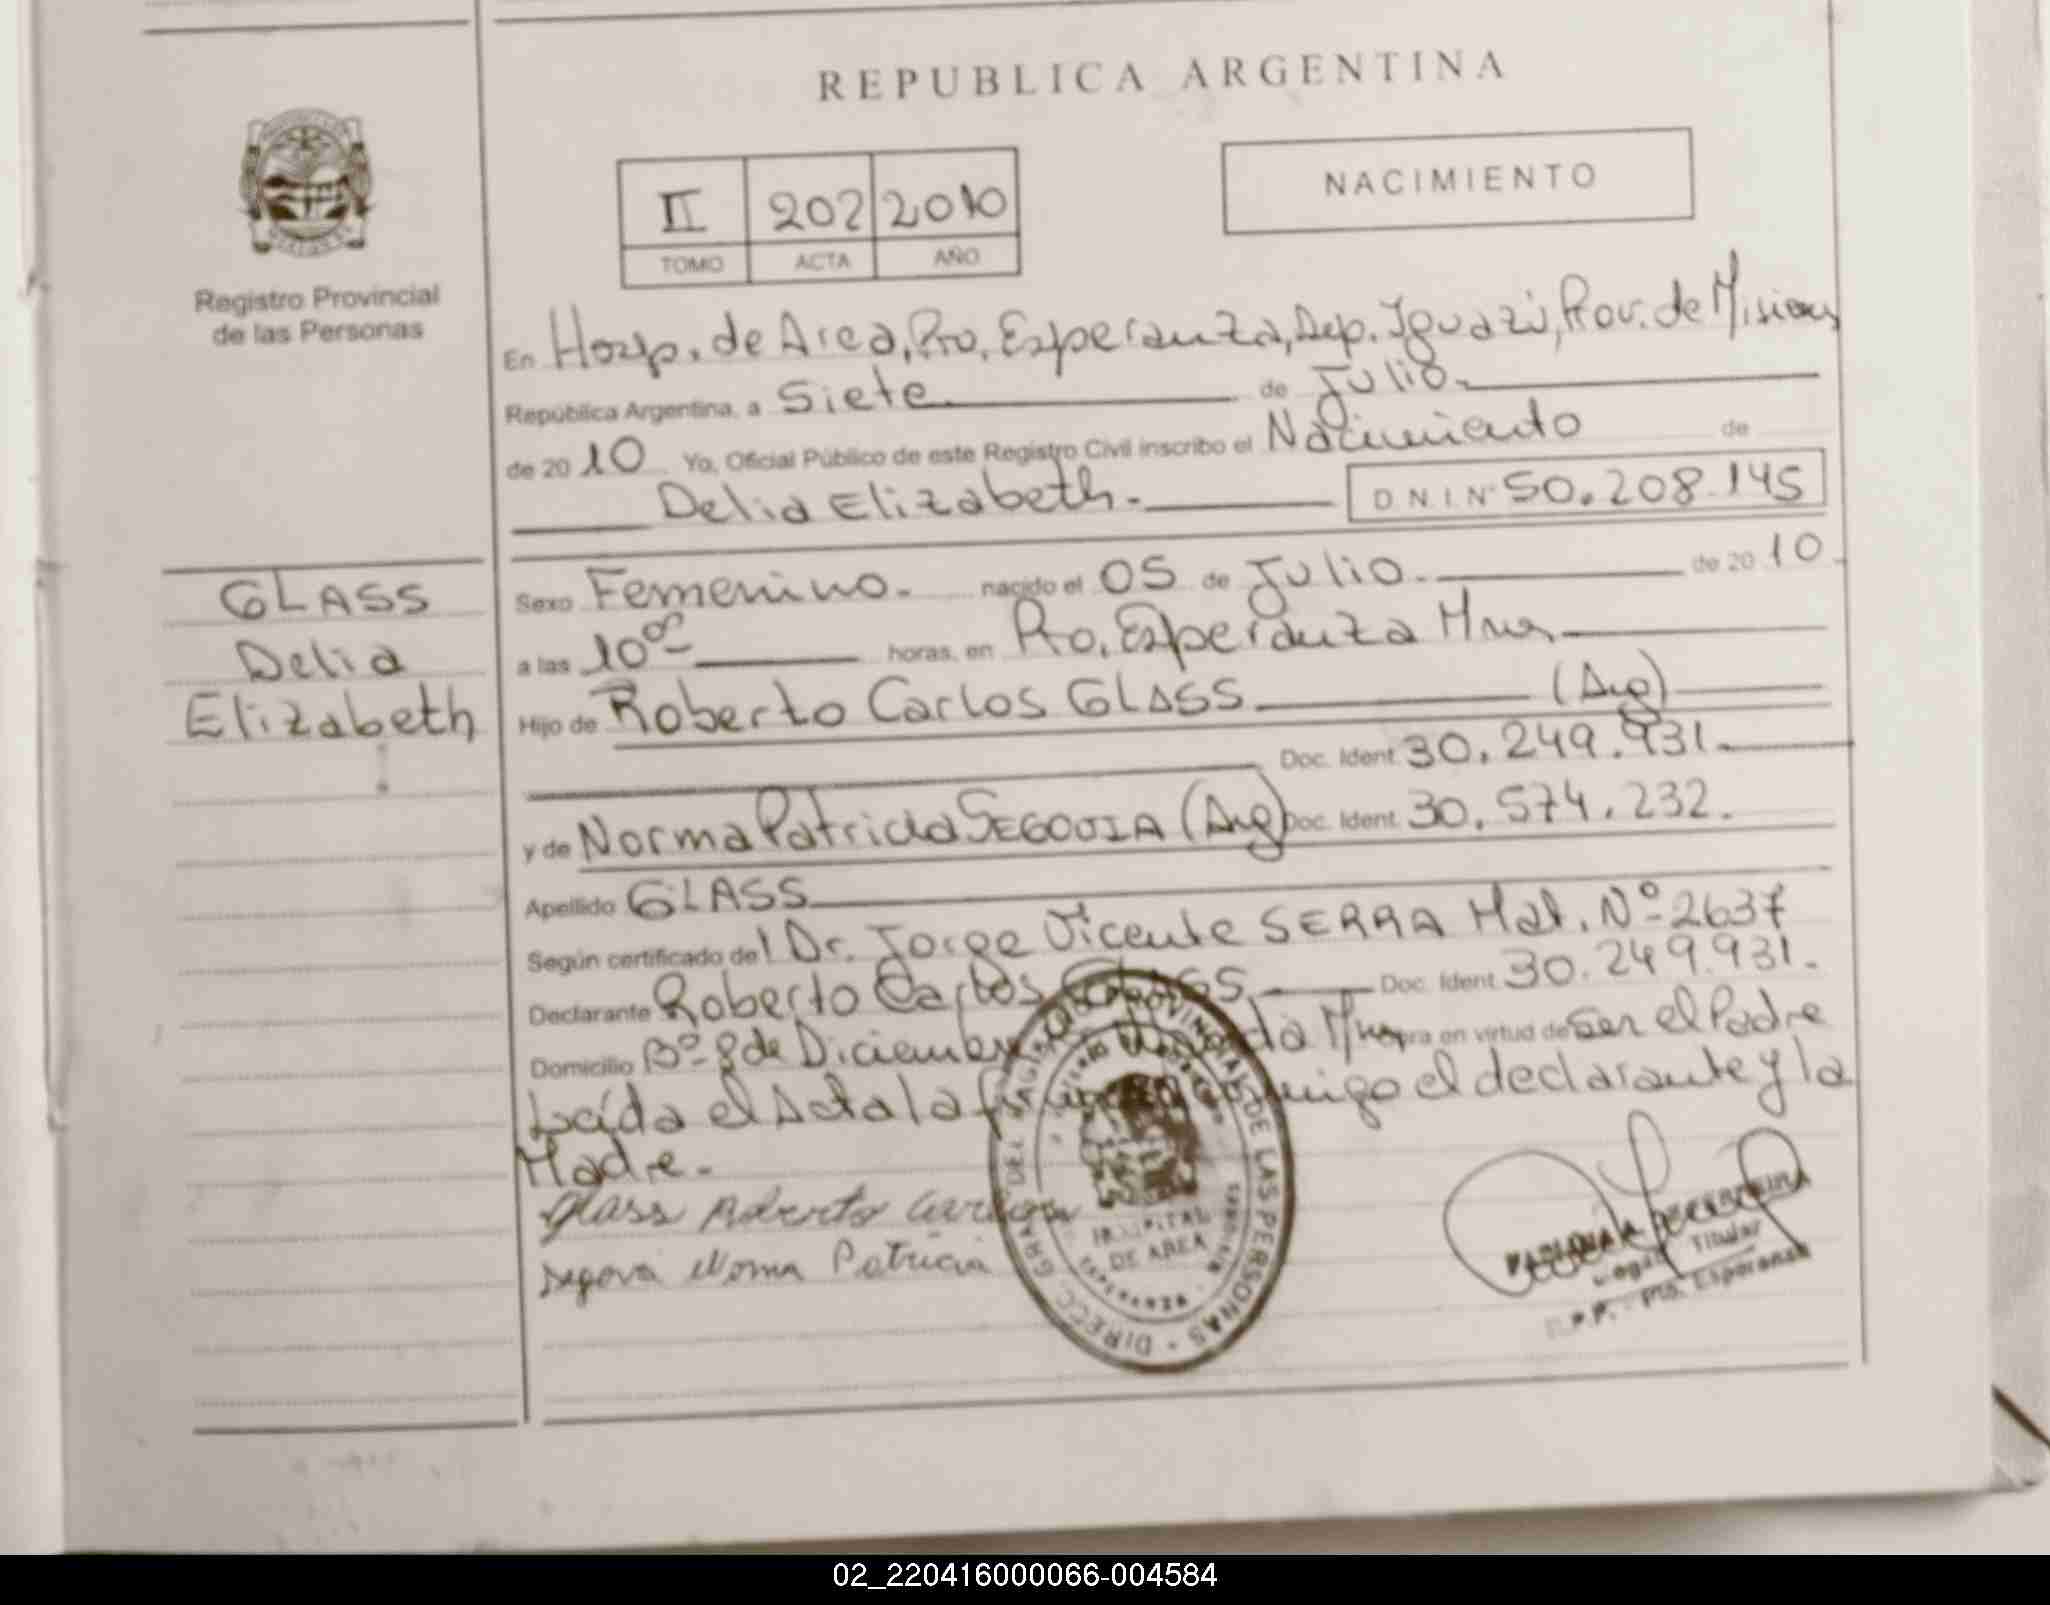 REPUBLICA ARGENTINA
Registro Provincial
de las Personas
II 202 2010
TOMO ACTA AÑO
NACIMIENTO
En Hosp. de Area, Pto. Esperanza, Dep. Iguazú, Prov. de Misiones
República Argentina, a Siete de Julio.
de 2010 Yo, Oficial Público de este Registro Civil inscribo el Nacimiento de
Delia Elizabeth. D.N.I. Nº 50.208.145
GLASS
Delia
Elizabeth
Sexo Femenino. nacido el 05 de Julio. de 2010.
a las 10 00 horas, en Pto. Esperanza Mnes
Hijo de Roberto Carlos GLASS (Arg)
Doc. Ident. 30.249.931.
y de Norma Patricia SEGOVIA (Arg) Doc. Ident. 30.574.232.
Apellido GLASS
Según certificado del Dr. Jorge Vicente SERRA Mat. Nº 2637
Declarante Roberto Carlos GLASS. Doc. Ident. 30.249.931.
Domicilio Bº 8 de Diciembre Mnes obra en virtud de ser el Padre
Leída el Acta la conmigo el declarante y la
Madre.
Glass Roberto Carlos
Segovia Norma Patricia
DIRECC. GRAL. DEL REGISTRO PROVINCIAL DE LAS PERSONAS
HOSPITAL
DE AREA
Titular
R.P.P. - Pto. Esperanza
02_220416000066-004584